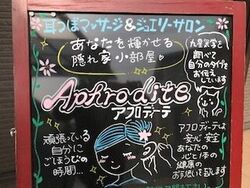 耳つぼマッサージ&ジュエリーサロン
あなたを輝かせる
隠れ家小部屋
九星気学を
調べて
自分のタイプを
お伝え
しています
Aphrodite
アフロディーテ
頑張っている
自分に
ごほうびの
時間…
アフロディーテは
美と
あなたの
心と体の
健康の
お手伝い致します